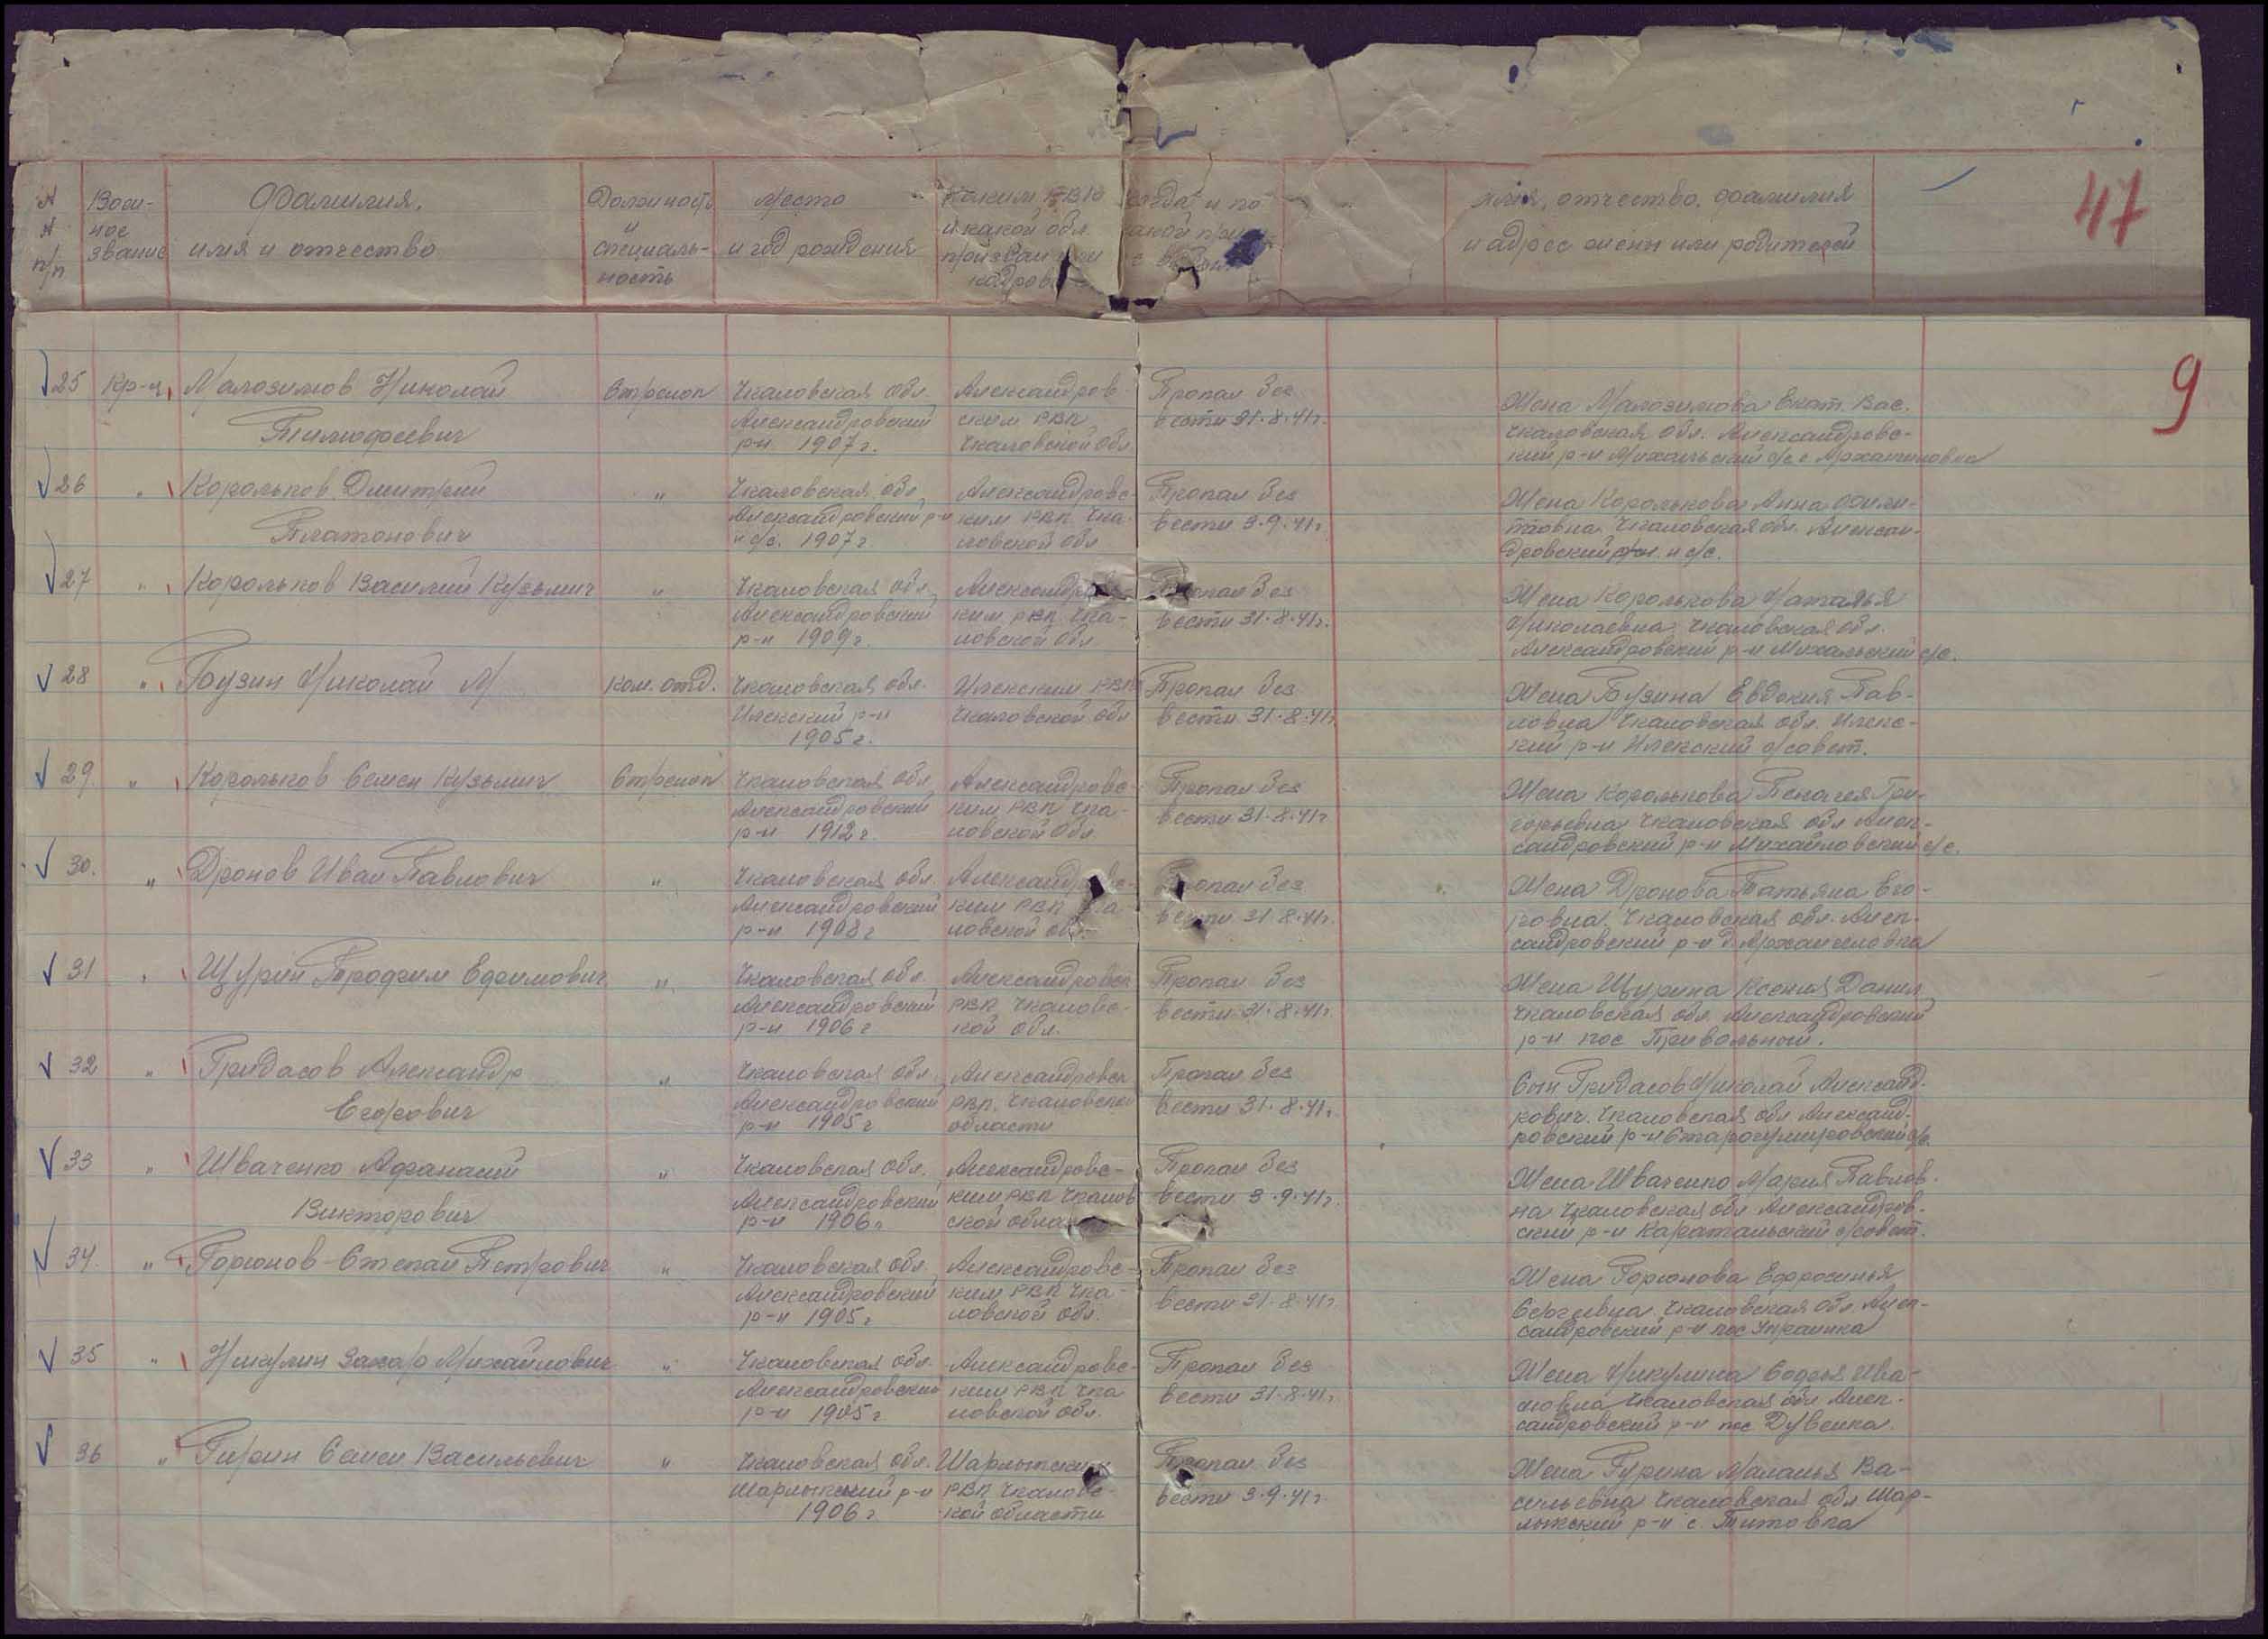 47
№ № п/п
Воен-ное звание
Фамилия, имя и отчество
Должность и специаль-ность
Место и год рождения
Каким РВК и какой обл. призван
когда и по какой
имя, отчество, фамилия и адрес жены или родителей
9
25 Кр-ц Малозимов Николай Тимофеевич
Стрелок
Чкаловская обл. Александровский р-н 1907 г.
Александров-ским РВК Чкаловской обл
Пропал без вести 31.8.41г.
Жена Малозимова Екат. Вас. Чкаловская обл. Александровс-кий р-н
26 " Корольков Дмитрий Платонович
"
Чкаловская обл, Александровский р-н с/с. 1907 г.
Александровс-ким РВК Чка-ловской обл
Пропал без вести 3.9.41г.
Жена Королькова Анна Чкаловская обл. Алексан-дровский р-н с/с.
27 " Корольков Василий Кузьмич
"
Чкаловская обл, Александровский р-н 1909 г.
Александровс-ким РВК Чка-ловской обл.
Пропал без вести 31.8.41г.
Жена Королькова Наталья Николаевна Чкаловская обл. Александровский р-н Михальский с/с.
28 " Гоузин Николай М
Ком. отд.
Чкаловская обл. Илекский р-н 1905 г.
Илекским РВК Чкаловской обл
Пропал без вести 31.8.41г.
Жена Гоузина Евдокия Пав-ловна Чкаловская обл. Илекс-кий р-н Илекский с/совет.
29. " Корольков Семен Кузьмич
Стрелок
Чкаловская обл, Александровский р-н 1912 г.
Александровс-ким РВК Чка-ловской обл
Пропал без вести 31.8.41г
Жена Королькова Пелагея Гри-горьевна Чкаловская обл Алек-сандровский р-н Михайловский с/с.
30. " Дронов Иван Павлович
"
Чкаловская обл. Александровский р-н 1908 г
Александровс-ким РВК Чка-ловской обл.
Пропал без вести 31.8.41г.
Жена Дронова Татьяна Его-ровна Чкаловская обл. Алек-сандровский р-н д. Архангеловка
31 " Щурин Трофим Ефимович
"
Чкаловская обл, Александровский р-н 1906 г
Александровск РВК Чкаловс-кой обл.
Пропал без вести 31.8.41г.
Жена Щурина Ксения Данил Чкаловская обл. Александровский р-н пос Привольный.
32 " Гридасов Александр Егорович
"
Чкаловская обл. Александровский р-н 1905 г
Александровск РВК Чкаловской области
Пропал без вести 31.8.41г.
Сын Гридасов Николай Александ-рович. Чкаловская обл Александ-ровский р-н
33 " Шваченко Афанасий Викторович
"
Чкаловская обл. Александровский р-н 1906 г
Александровс-ким РВК Чкалов ской облас
Пропал без вести 3.9.41г.
Жена Шваченко Мария Павлов-на Чкаловская обл Александров-ский р-н Каратальский с/совет.
34. " Горюнов Степан Петрович
"
Чкаловская обл. Александровский р-н 1905 г
Александровс-ким РВК Чка-ловской обл.
Пропал без вести 31.8.41г
Жена Горюнова Ефросинья Сергеевна Чкаловская обл Алек-сандровский р-н пос Украинка
35 " Никулин Захар Михайлович
"
Чкаловская обл. Александровский р-н 1905 г
Александровс-ким РВК Чка ловской обл.
Пропал без вести 31.8.41г.
Жена Никулина Софья Ива-новна Чкаловская обл Алек-сандровский р-н пос Дубенка.
36 " Гирин Семен Васильевич
"
Чкаловская обл. Шарлыкский р-н 1906 г
Шарлыкским РВК Чкаловс-кой области
Пропал без вести 3.9.41г.
Жена Гурина Маланья Ва-сильевна Чкаловская обл Шар-лыкский р-н с. Титовка